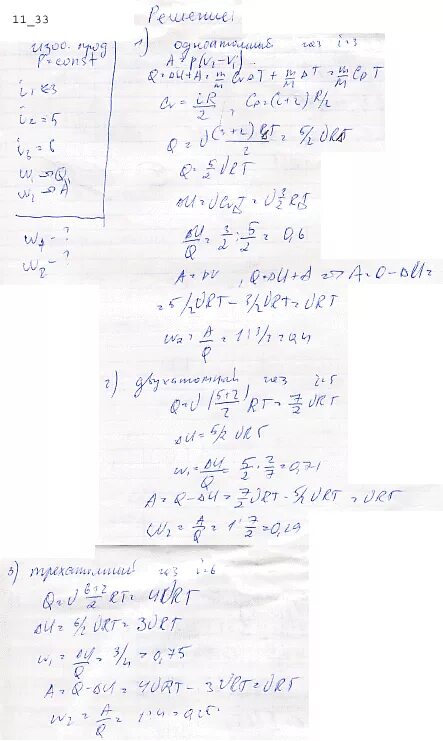 11_33
Решение:
изоб. проц
P=const
i₁=3
i₂=5
i₃=6
w₁→Q
w₂→A
w₁-?
w₂-?
1) одноатомный газ i=3
A=p(V₂-V₁)
Q=ΔU+A=m/M CvΔT+m/M ΔT=m/M CpT
Cv=iR/2, Cp=(i+2)R/2
Q=ν(3+2)RT/2=5/2 νRT
Q=5/2 νRT
ΔU=νCvT=ν3/2 RT
ΔU/Q=3/2:5/2=0,6
A=pV, Q=ΔU+A=>A=Q-ΔU=
=5/2νRT-3/2νRT=νRT
w₂=A/Q=1:5/2=0,4
2) двухатомный газ i=5
Q=ν(5+2/2)RT=7/2 νRT
ΔU=5/2 νRT
w₁=ΔU/Q=5/2·2/7=0,71
A=Q-ΔU=7/2νRT-5/2νRT=νRT
w₂=A/Q=1:7/2=0,29
3) трехатомный газ i=6
Q=ν6+2/2 RT=4νRT
ΔU=6/2 νRT=3νRT
w₁=ΔU/Q=3/4=0,75
A=Q-ΔU=4νRT-3νRT=νRT
w₂=A/Q=1:4=0,25